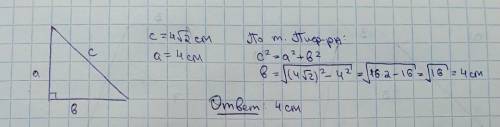 c = 4√2 см
a = 4 см
По т. Пиф-ра:
c² = a² + в²
в = √((4√2)² - 4²) = √(16·2 - 16) = √16 = 4 см
a
c
в
Ответ: 4 см